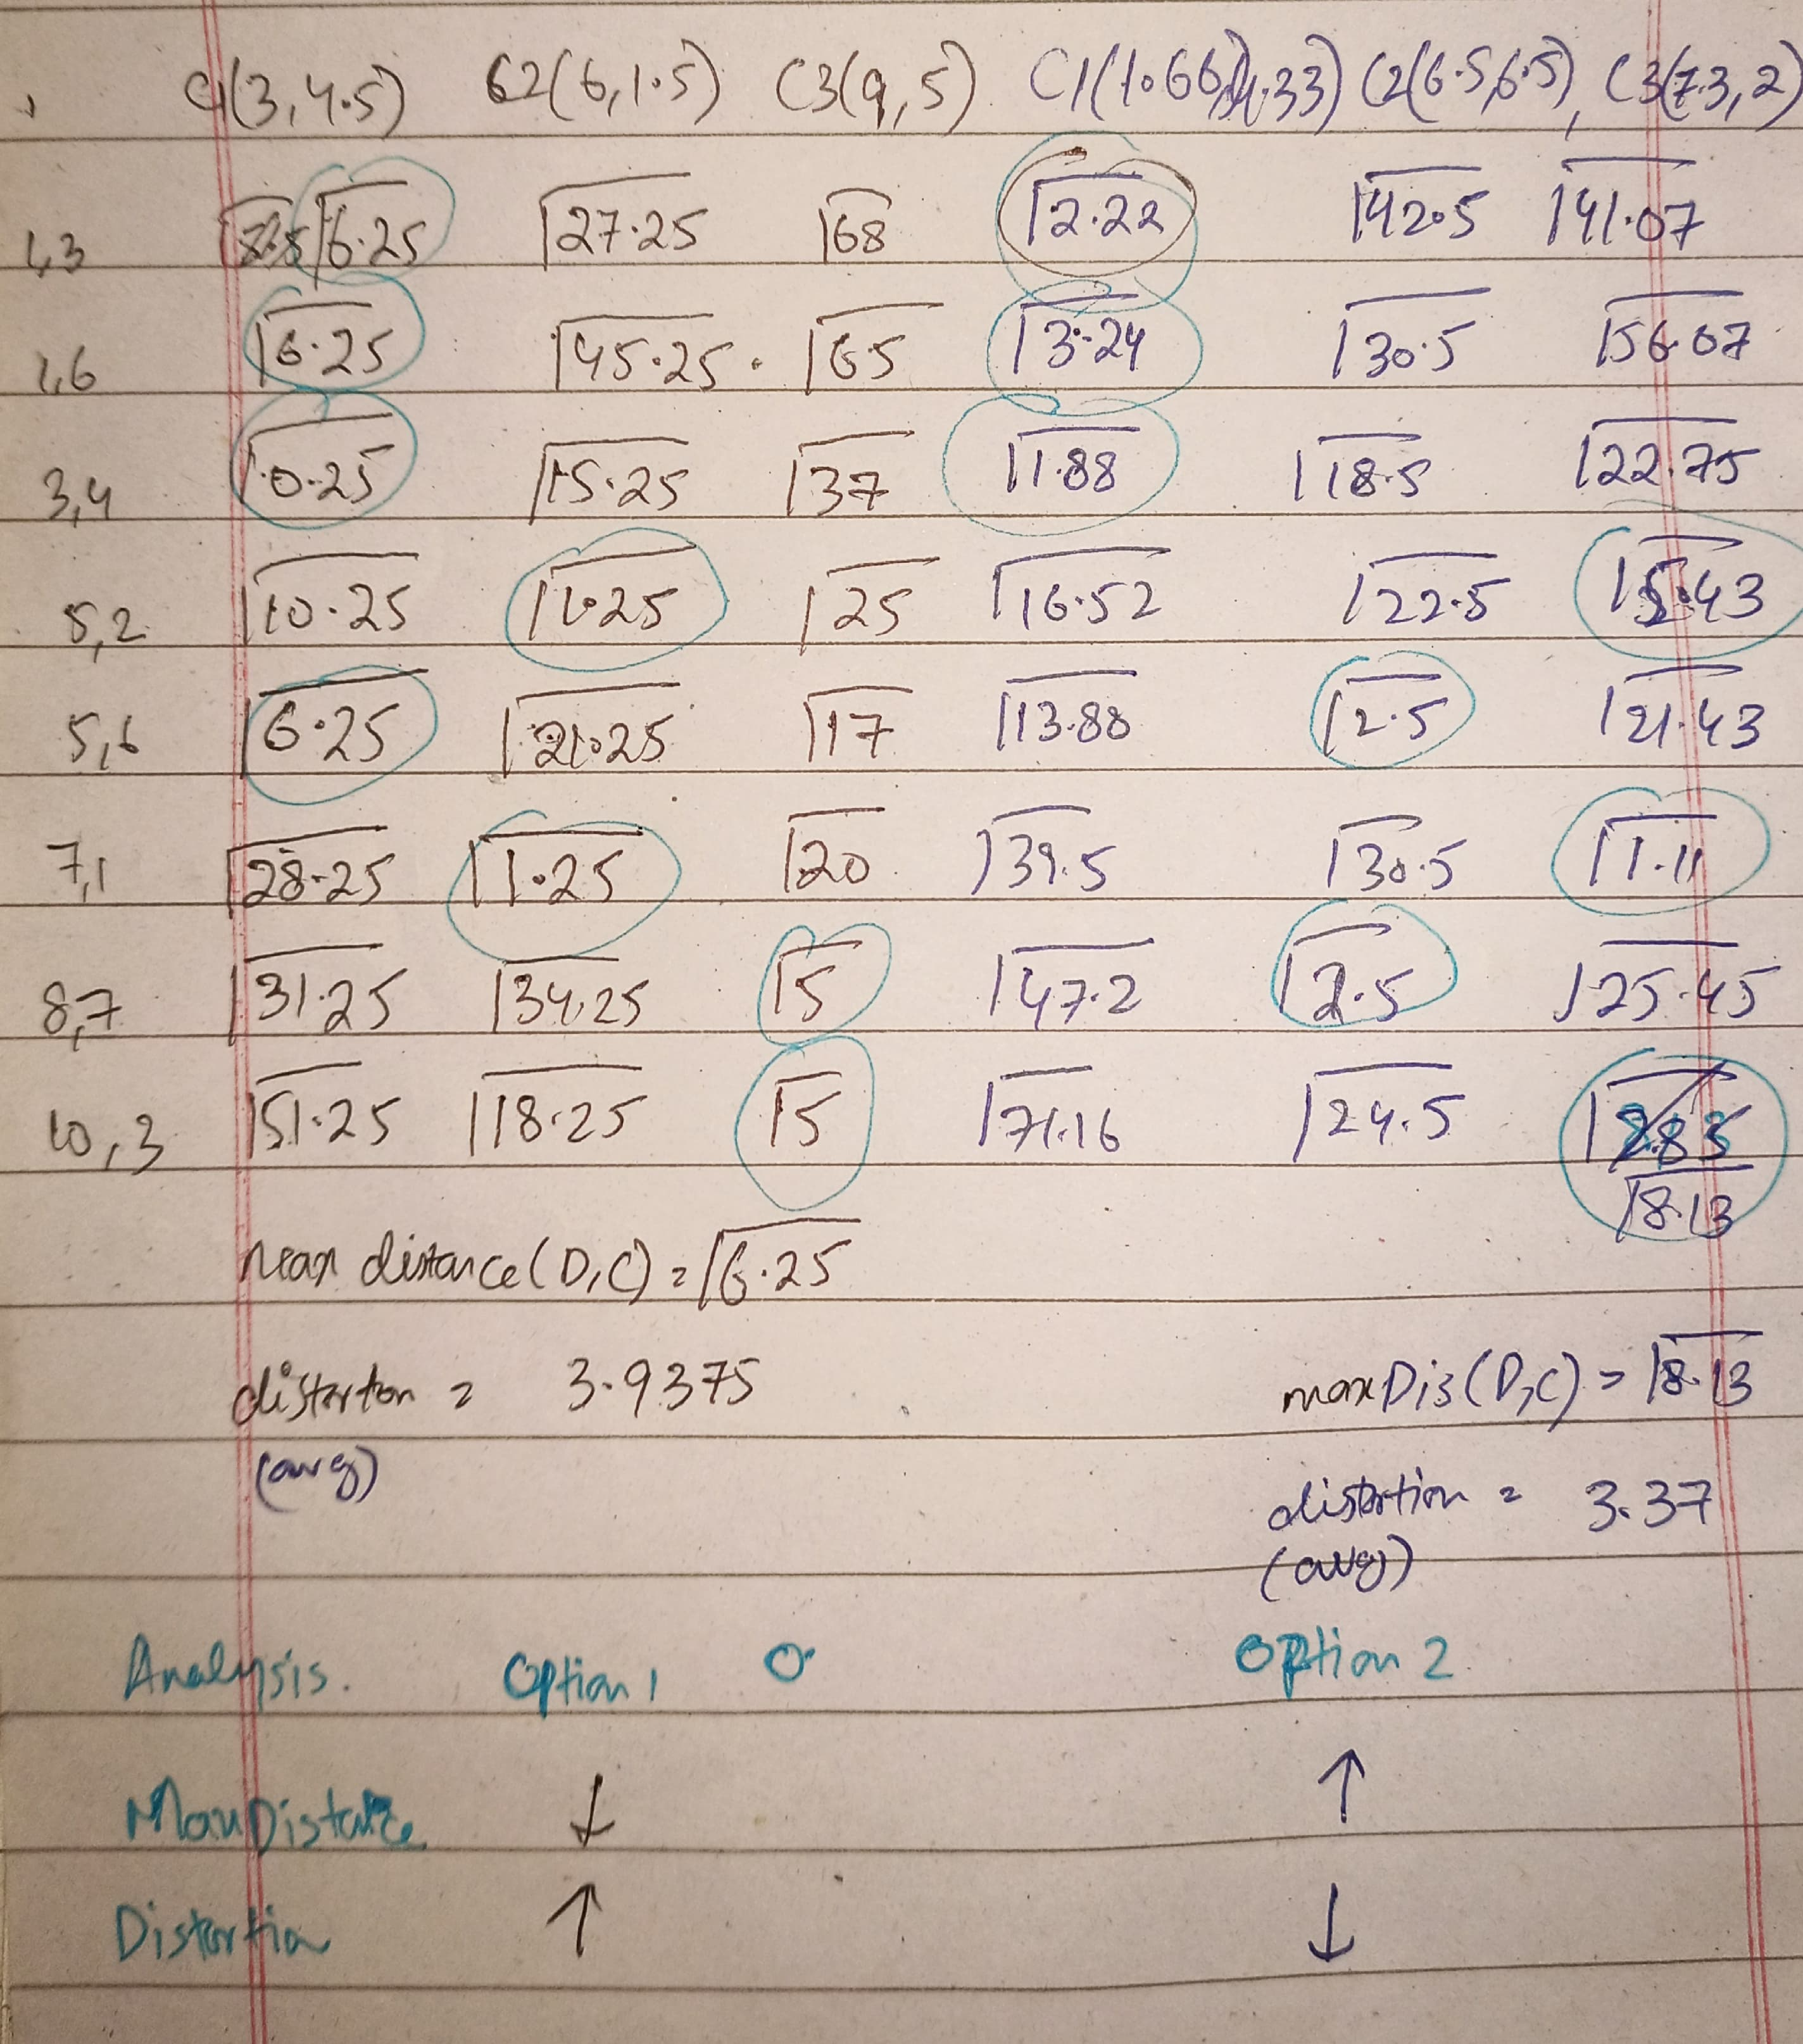 C1(3,4.5) C2(6,1.5) C3(9,5) C1(1.66,4.33) C2(6.5,6.5), C3(7.3,2)
1,3 √6.25 √27.25 √68 √2.22 √42.5 √41.07
1,6 √6.25 √45.25 √65 √3.24 √30.5 √56.07
3,4 √0.25 √15.25 √37 √1.88 √18.5 √22.75
5,2 √10.25 √1.25 √25 √16.52 √22.5 √5.43
5,6 √6.25 √21.25 √17 √13.88 √2.5 √21.43
7,1 √28.25 √1.25 √20 √39.5 √30.5 √1.11
8,7 √31.25 √34.25 √5 √47.2 √2.5 √25.45
10,3 √51.25 √18.25 √5 √71.16 √24.5
√8.13
max distance(D,C) = √6.25
distorton = 3.9375 maxDis(D,C) = √8.13
(avg)
distortion = 3.37
(avg)
Analysis. Option 1 Option 2
Max Distance ↓ ↑
Distortion ↑ ↓